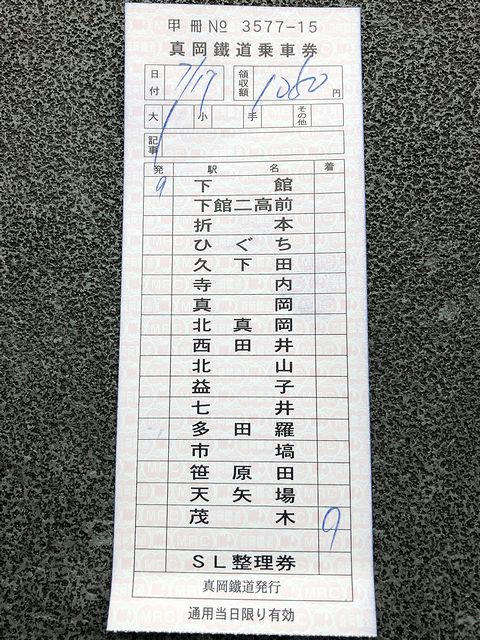 甲冊№ 3577-15
真岡鐵道乗車券
日付 7/17 領収額 1050 円
大 1 小 手 その他
記事
発 駅名 着
9 下館
下館二高前
折本
ひぐち
久下田
寺内
真岡
北真岡
西田井
北山
益子
七井
多田羅
市塙
笹原田
天矢場
茂木 9
SL整理券
真岡鐵道発行
通用当日限り有効